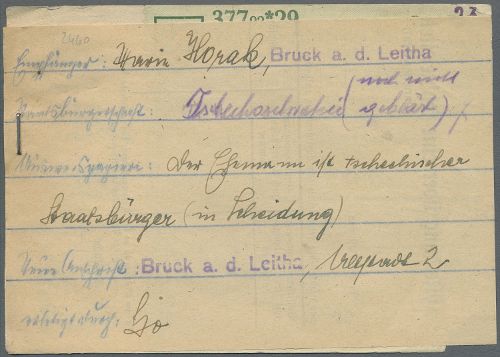 377 *29
2460
Empfänger: Marie Horak, Bruck a. d. Leitha
Staatsbürgerschaft: Tschechoslowakei (noch nicht
geklärt)
Ausweispapiere: Der Ehemann ist tschechischer
Staatsbürger (in Scheidung)
Neue Anschrift: Bruck a. d. Leitha, Altstadt 2
erledigt durch: